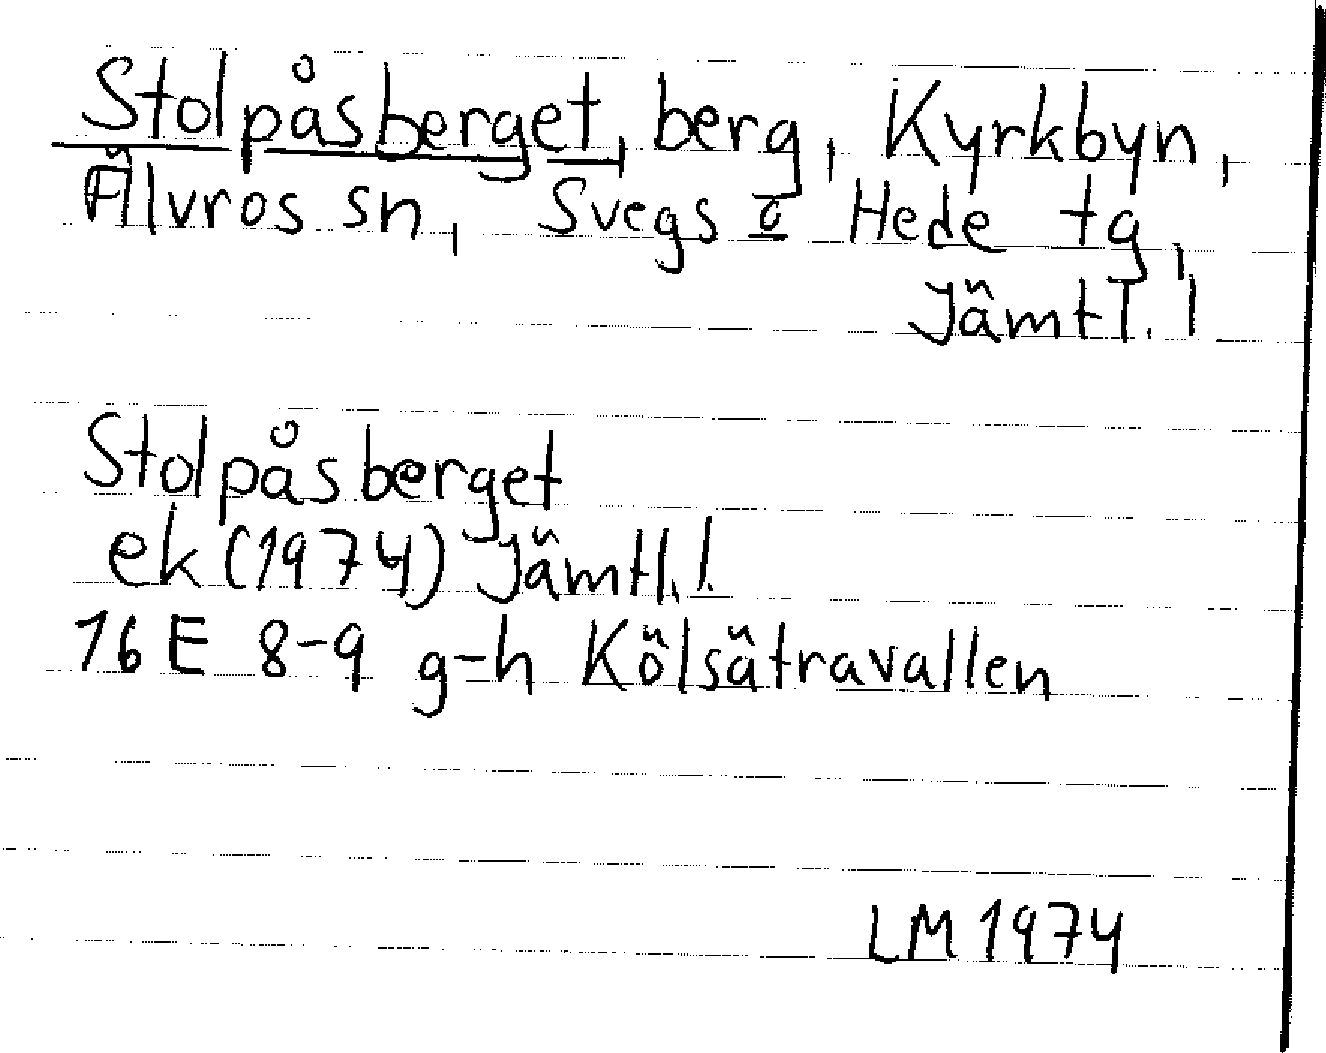 Stolpåsberget, berg, Kyrkbyn,
Älvros sn, Svegs o Hede tg,
Jämtl. l
Stolpåsberget
ek (1974) Jämtl. l.
16 E 8-9 g-h Kölsätravallen
LM 1974